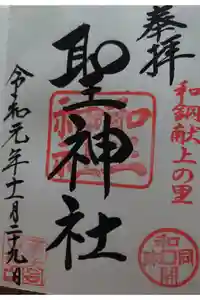 奉拝
和銅献上の里
聖神社
令和元年十一月二十九日